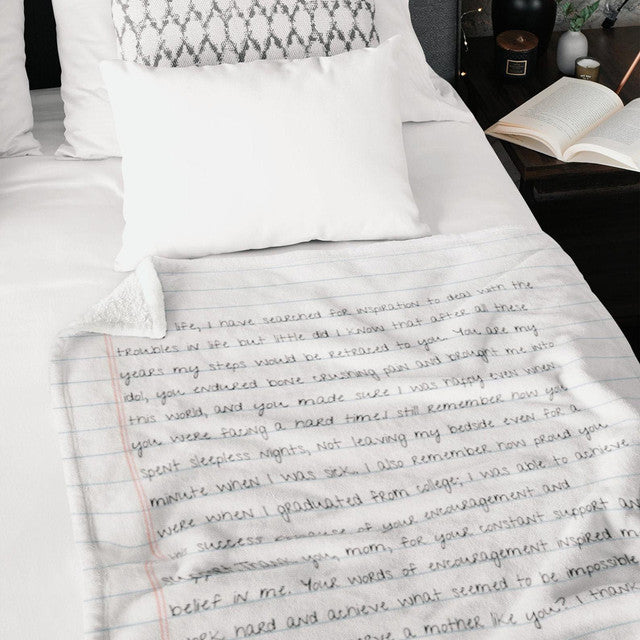 life, I have searched for inspiration to deal with the
trouble in life but little did I know that after all these
years my steps would be retraced to you. You are my
idol, you endured bone crushing pain and brought me into
this world, and you made sure I was happy even when
you were facing a hard time! I still remember how you
spent sleepless nights, not leaving my bedside even for a
minute when I was sick. I also remember how proud you
were when I graduated from college; I was able to achieve
success because of your encouragement and
you, mom, for your constant support and
belief in me. Your words of encouragement inspired me
work hard and achieve what seemed to be impossible
have a mother like you? I thank